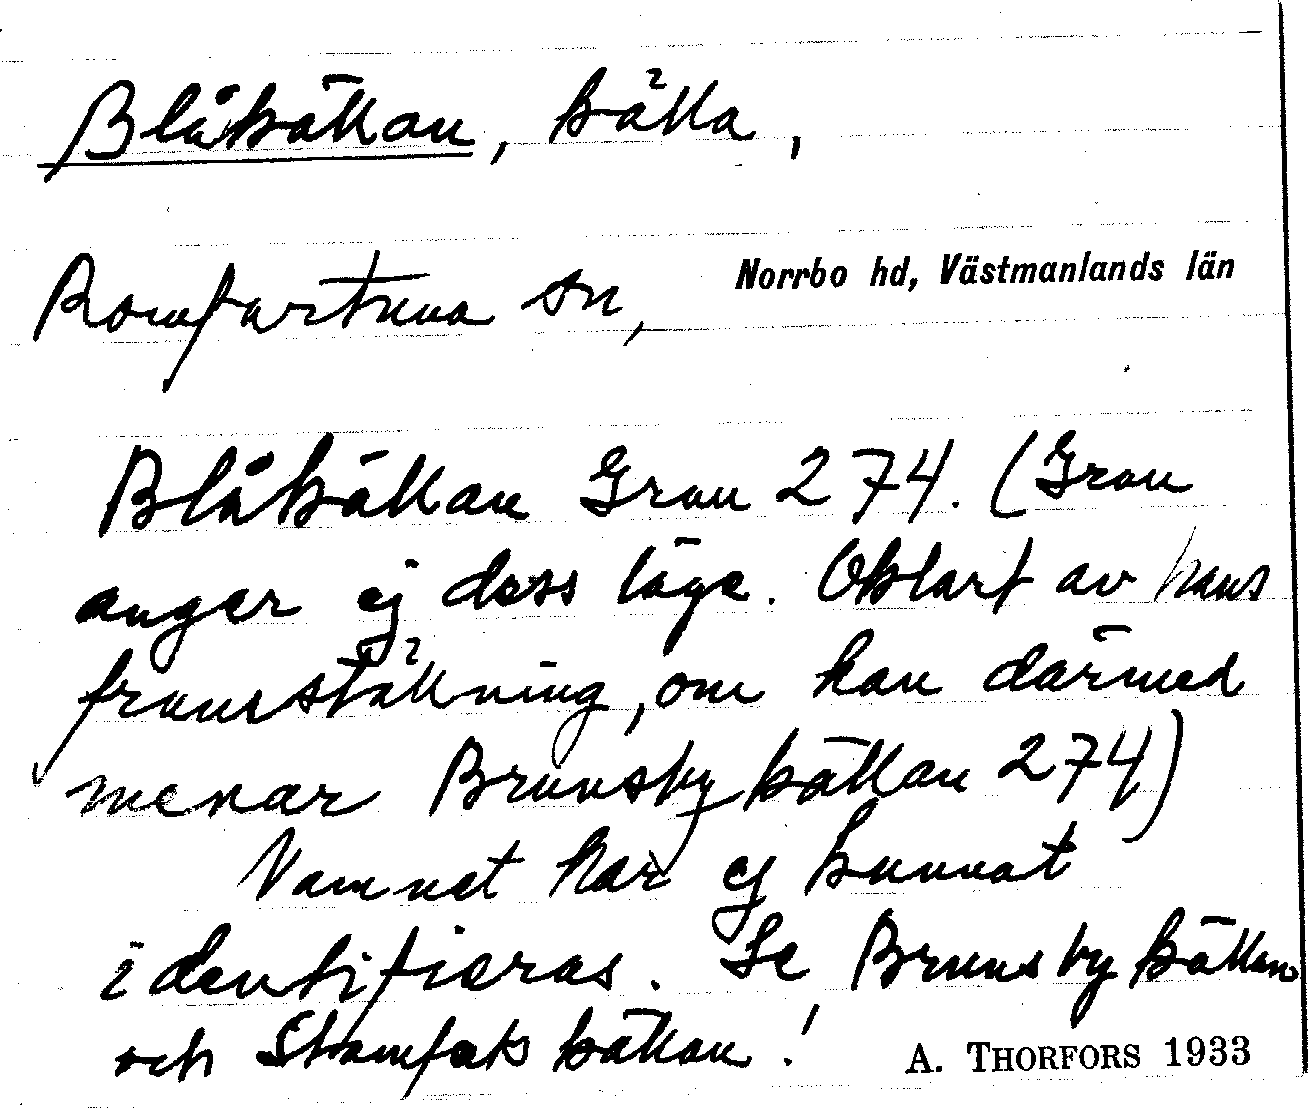 Blåkällan, källa,
Romfartuna sn, Norrbo hd, Västmanlands län
Blåkällan Grau 274. (Grau
anger ej dess läge. Oklart av hans
framställning, om han därmed
menar Brunsbykällan 274)
Namnet har ej kunnat
identifieras. Se Brunsbykällan
och Stamfaks källan! A. THORFORS 1933